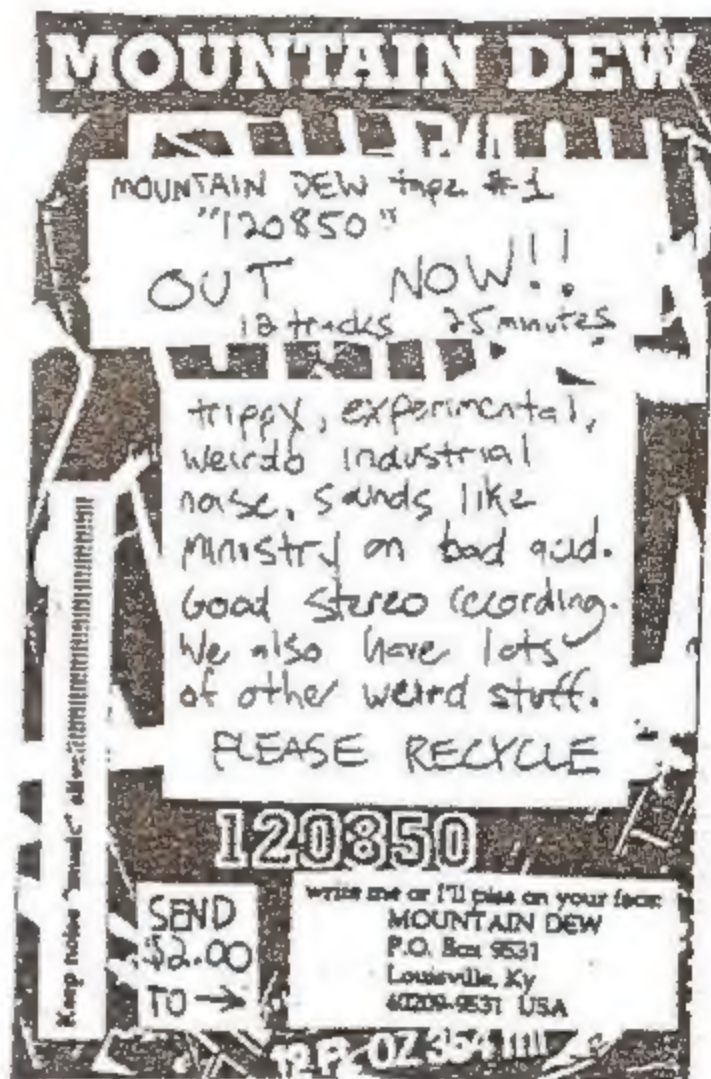 MOUNTAIN DEW
MOUNTAIN DEW tape #1
"120850"
OUT NOW!!
12 tracks 25 minutes
trippy, experimental,
weirdo industrial
noise, sounds like
ministry on bad acid.
Good stereo recording.
We also have lots
of other weird stuff.
PLEASE RECYCLE
120850
Keep noise "music"
SEND
$2.00
TO →
write me or I'll piss on your face:
MOUNTAIN DEW
P.O. Box 9531
Louisville, Ky
40209-9531 USA
12 FL OZ 354 ml